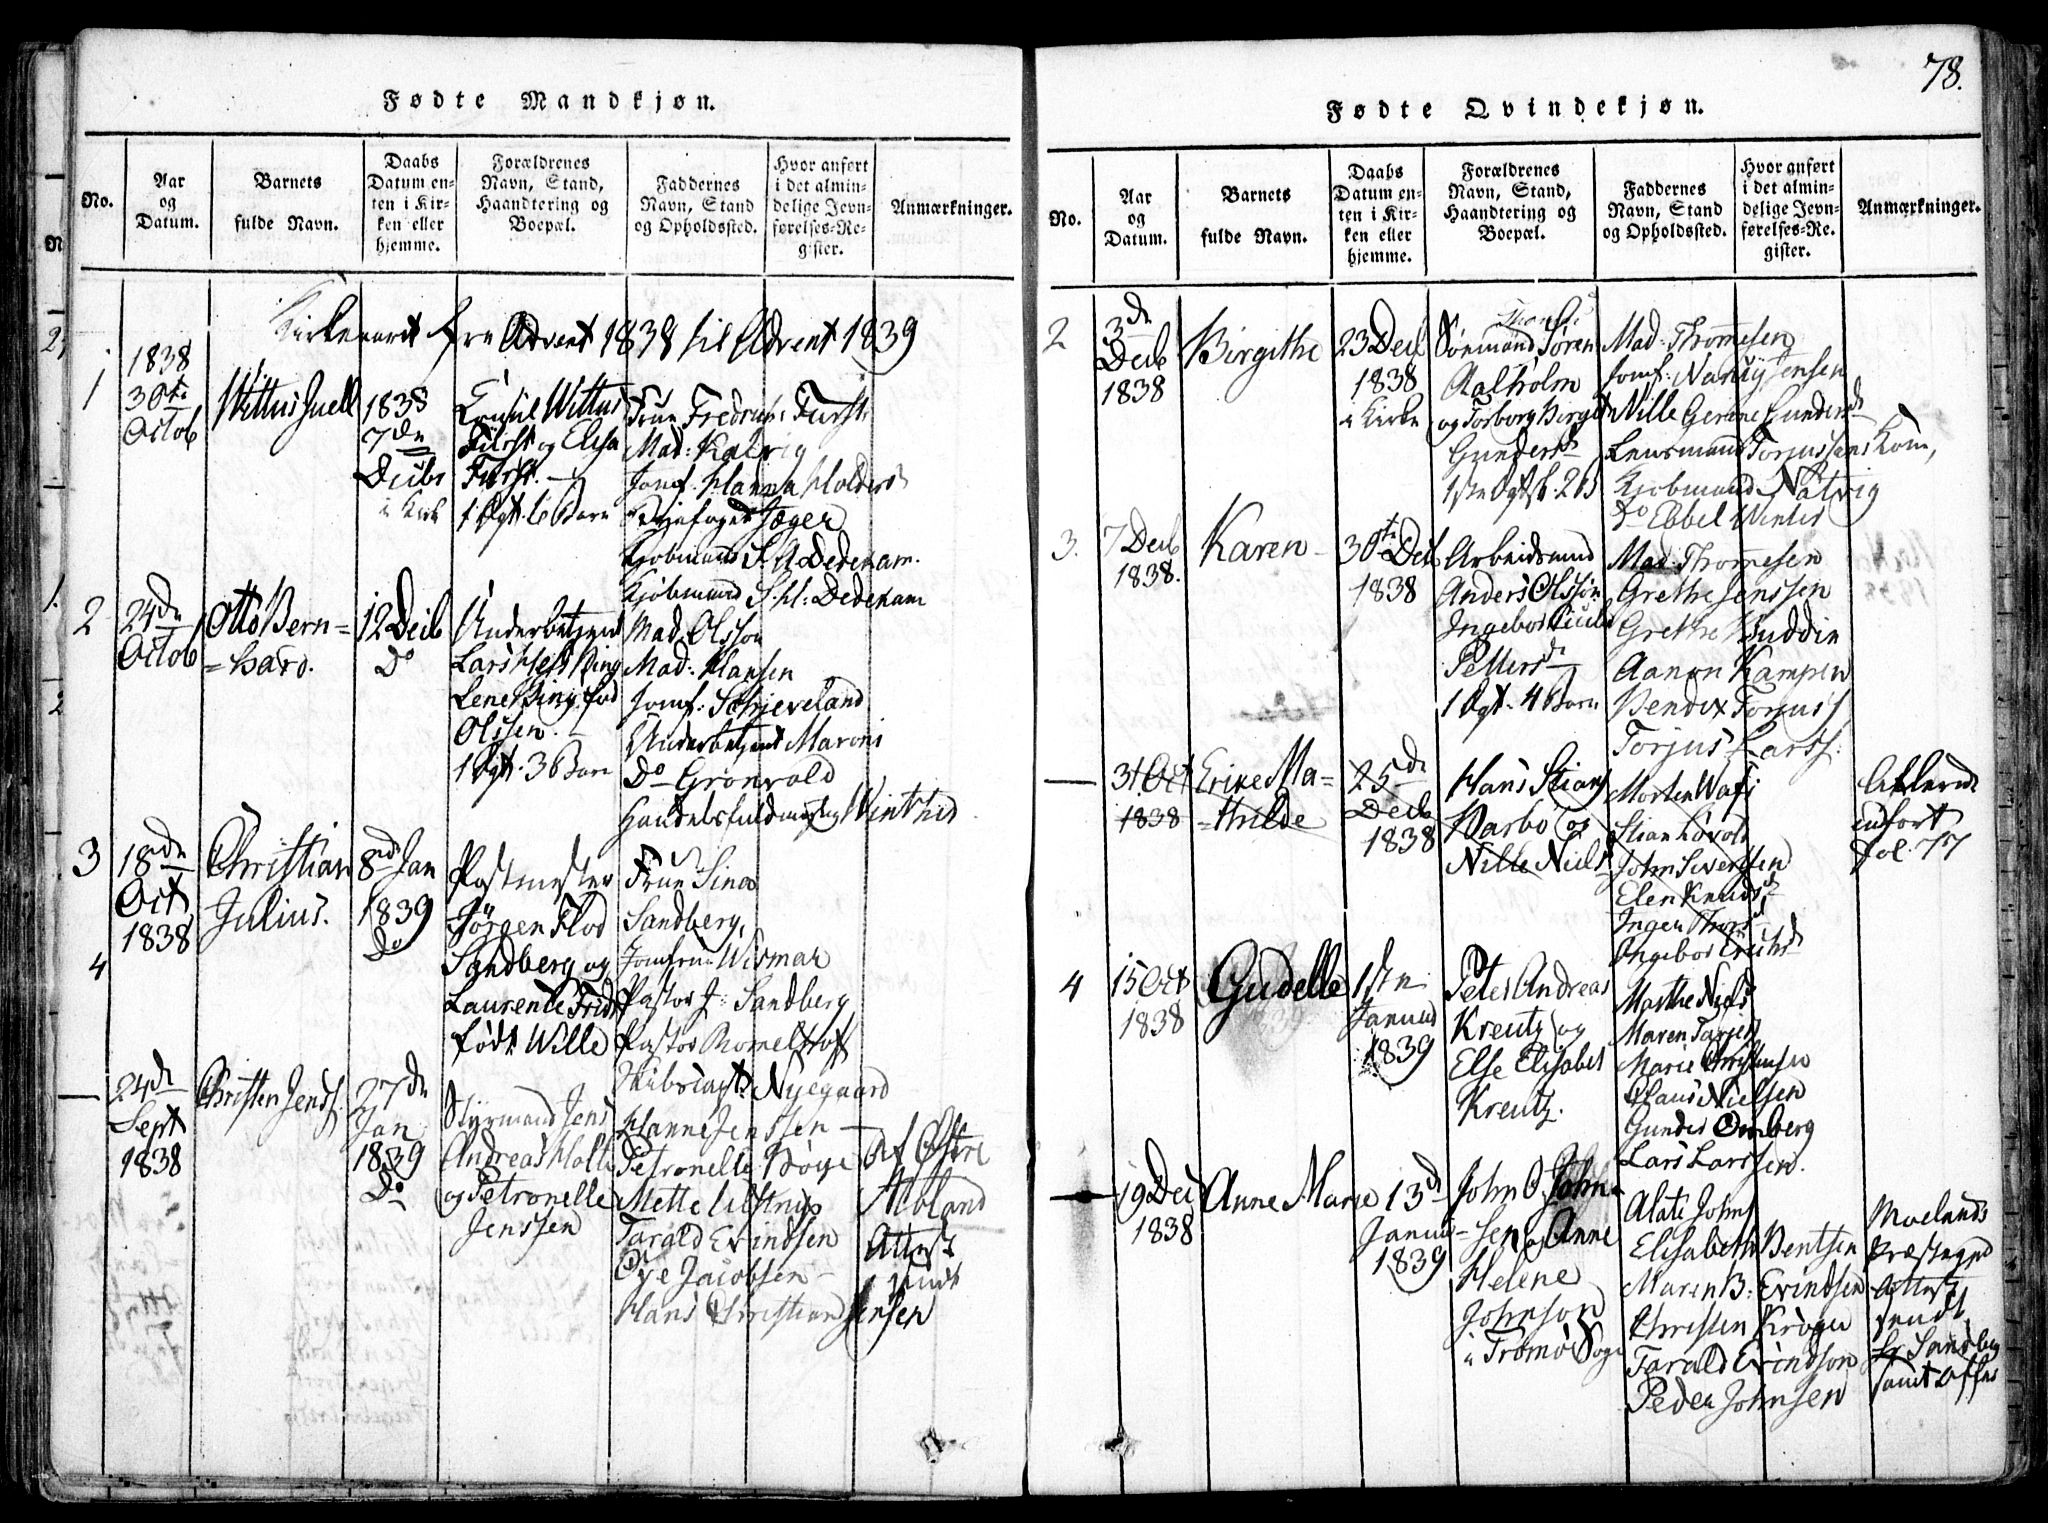 78.
Fødte Mandkjøn.
No.
Aar og Datum.
Barnets fulde Navn.
Daabs Datum enten i Kirken eller hjemme.
Forældrenes Navn, Stand, Haandtering og Boepæl.
Faddernes Navn, Stand og Opholdssted.
Hvor anført i det almindelige Jevnførelses-Register.
Anmærkninger.
Kirkeaaret fra Advent 1838 til Advent 1839
1
1838
30te
Octob
Wittus Juell
1838
7de
Decbr
i Kirke
Consul Wittus
Fürst og Elisa
Fürst.
1 Ægt. 6 Barn
Frue Fredrikke Fürst
Mad: Kalvig
Jomf. Hanna Molders
Jæger
Kjøbmand S. A Dedekam.
Kjøbmand S. H: Dedekam
2
24de
Octob
Otto Bern=
=hard.
12 Decb
Do
Underbetjent
Lars Hess Bing
Lene Bing fød
Olssen.
1 Ægt. 3 Barn
Mad. Olsson
Mad: Hansen
Jomf: Schieveland
Underbetjent Maroni
Do Grønvold
Winther
3
18de
Oct
1838
Christian
Julius.
8de Jan
1839
Do
Postmester
Jørgen Flod
Sandberg og
Laurentze Fridr
født Wille
Frue Sina
Sandberg,
Jomfrue Wismar
Pastor J: Sandberg
Pastor Romelhoff
Skibscapt. Nyegaard
4
24de
Sept
1838
Christen Jens.
27de
Jan
1839
Do
Styrmand Jens
Andreas Holte
og Petronelle
Jenssen
Hanne Jenssen
Petronelle Bøge
Mette Ulstrup
Tarald Evindsen
Oye Jacobsen
Hans Christian Jensen
Af Østre
Moland
Attest
sendt
Fødte Qvindekjøn.
No.
Aar og Datum.
Barnets fulde Navn.
Daabs Datum enten i Kirken eller hjemme.
Forældrenes Navn, Stand, Haandtering og Boepæl.
Faddernes Navn, Stand og Opholdssted.
Hvor anført i det almindelige Jevnførelses-Register.
Anmærkninger.
2
3de
Decb
1838
Birgithe
23 Decb
1838
i Kirke
Sømand Søren
Aalholm
og Torborg Birgit
Gundersd
Mad: Thommesen
Jomf: Nancy Jensen
Nille Gerine Gundersd
Lensmand Torjussens Kone,
Kjøbmand Natvig
Do Ebbel Winter
3.
7 Decb
1838.
Karen
30te Decb
1838
Arbeidsmand
Anders Olsson
Petersd
1 Ægt. 4 Barn
Mad. Thommesen
Grethe Jenssen
Grethe Buddin
Aanon Kampen
Bendix Torjus
Torjus Larss.
31 Oct
1838
Erike Ma=
=thilde
25de
Decb
1838
Hans Stians
Barbo og
Nille Niels
Morten Wafs
Stian Løvold
John Sivertsen
Elen Knudsd
Inger Thorsd
Ingebor Erichsd
Allerede
indført
fol. 77
4
15 Oct
1838
Gudelle
1ste
Januar
1839
Peter Andreas
Kreutz og
Else Elisabet
Kreutz.
Marthe Niels
Maren Tarjers
Marie Christense
Claus Nielsen
Gunder Omberg
Lars Larssen.
19 Dec
1838
Anne Marie
13de
Januar
1839
John O. John=
=sen og Anne
Helene
Johnson
i Tromø Sogn
Alate Johns
Elisabeth Bentsen
Maren B: Evindsen
Christen Krøger
Tarald Evindson
Peder Johnsen
Moelands
Præstegjed
Attest
sendt
hr Sandberg
samt Offer